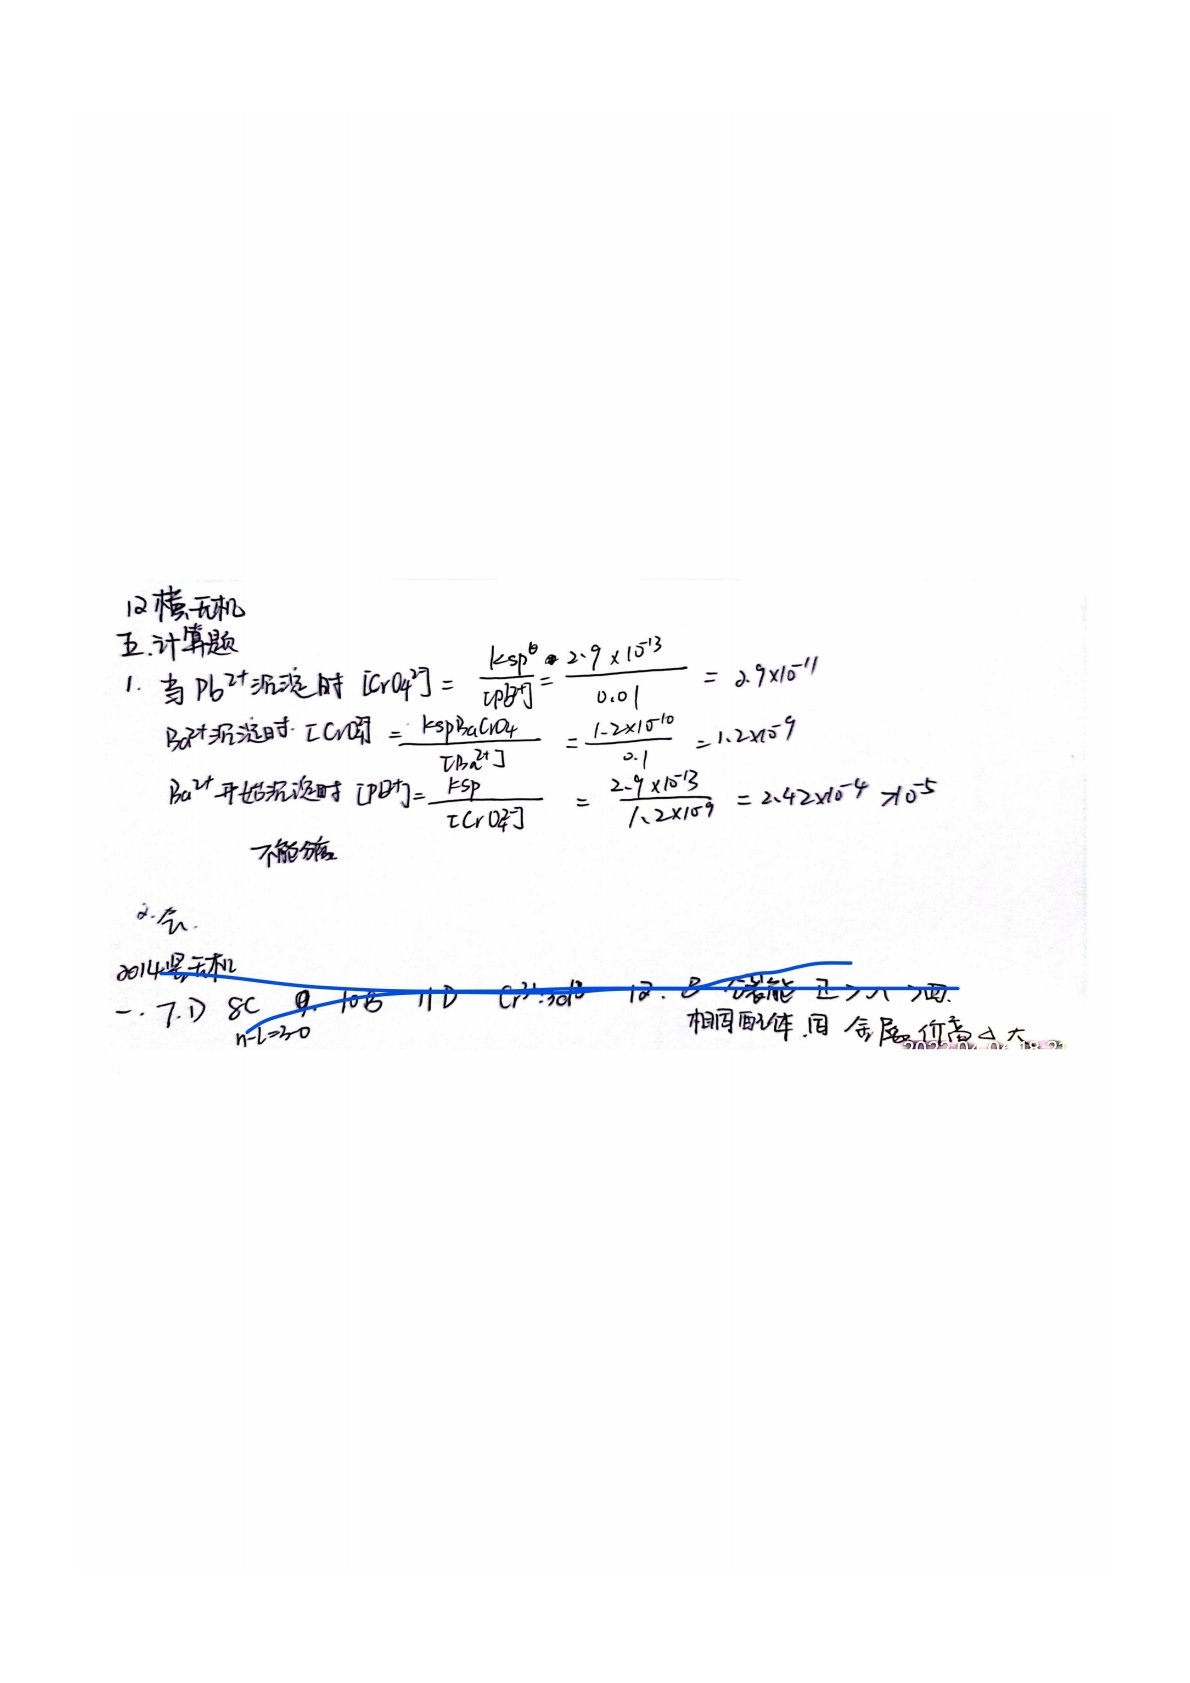 12横无机
五.计算题
1. 当Pb²⁺沉淀时 [CrO₄²⁻] = Ksp^θ/[Pb²⁺] = 2.9×10⁻¹³/0.01 = 2.9×10⁻¹¹
Ba²⁺沉淀时. [CrO₄²⁻] = KspBaCrO₄/[Ba²⁺] = 1.2×10⁻¹⁰/0.1 = 1.2×10⁻⁹
Ba²⁺开始沉淀时 [Pb²⁺] = Ksp/[CrO₄²⁻] = 2.9×10⁻¹³/1.2×10⁻⁹ = 2.42×10⁻⁴ >10⁻⁵
不能分离
2.
2014竖无机
一. 7.D 8C 9. 10B 11D Cr³⁺: 12. B
n-l=3-0
相同配体.同 金属 价高△大